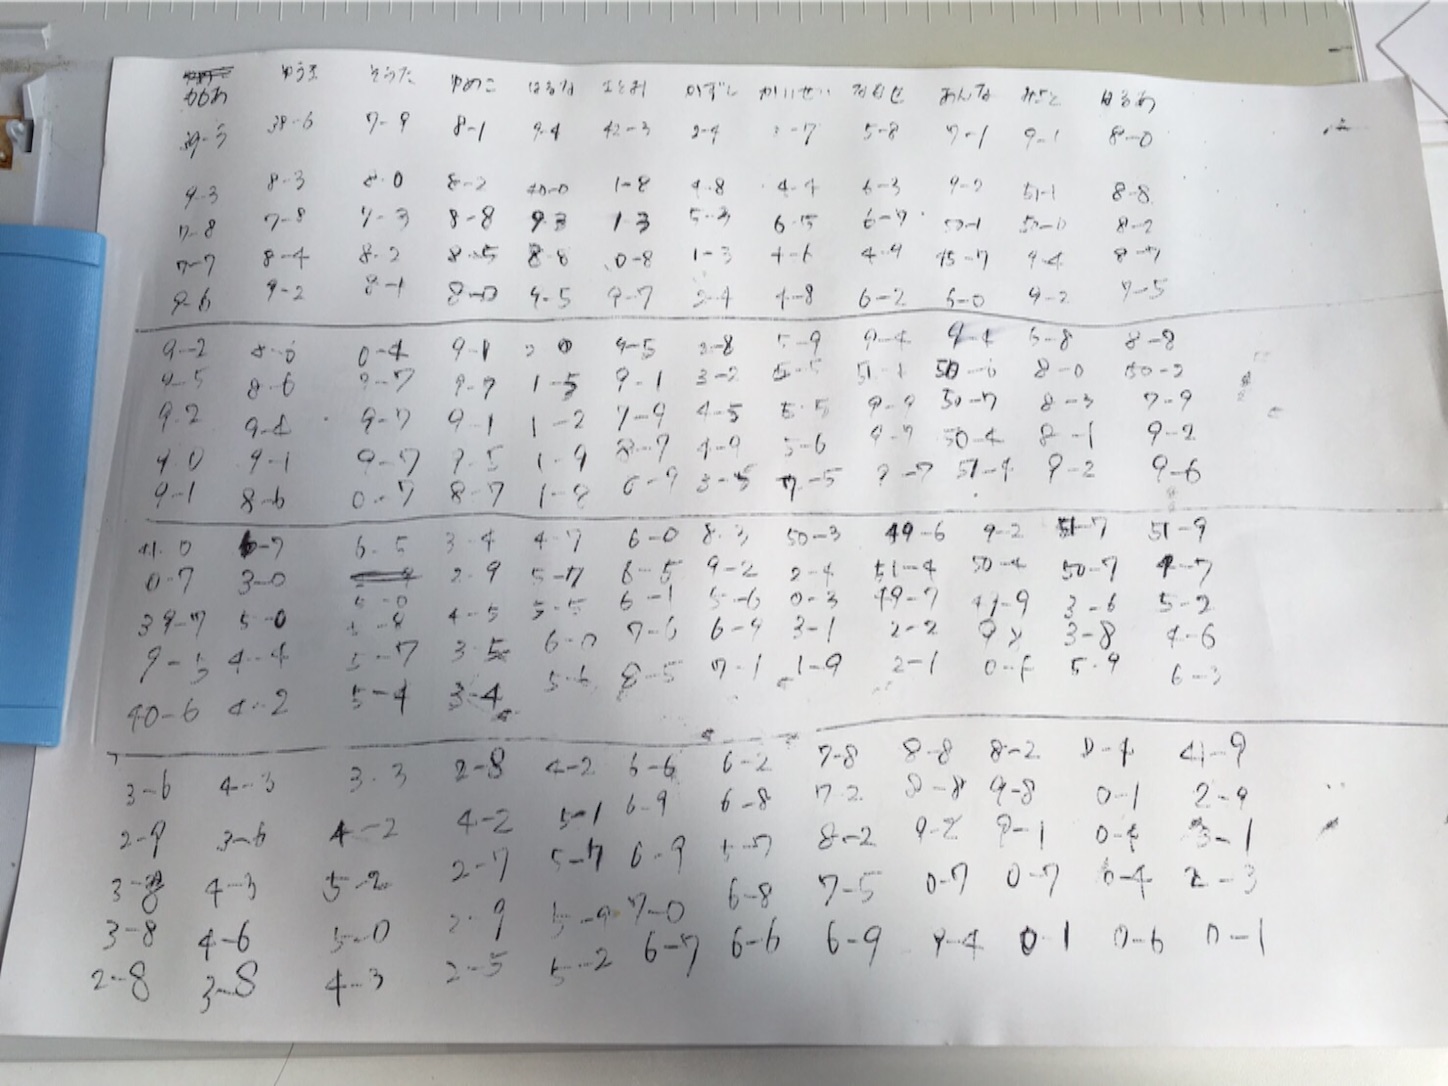 ゆうま そうた ゆめこ はるな さとみ かずし かいせい ななせ あんな みこと はるあ
39-5 38-6 7-9 8-1 9-4 42-3 2-4 5-8 7-1 9-1 8-0
9-3 8-3 8-0 8-2 40-0 1-8 4-8 4-4 6-3 9-2 51-1 8-8
7-8 7-8 7-3 8-8 9-3 1-3 5-3 6-5 6-7 50-1 50-0 8-2
7-7 8-4 8-2 8-5 8-8 0-8 1-3 4-6 4-9 45-7 9-4 8-7
9-6 9-2 8-1 8-0 9-5 9-7 2-4 4-8 6-2 6-0 9-2 7-5
9-2 8-0 0-4 9-1 9-5 3-8 5-9 9-4 9-4 6-8 8-8
9-5 8-6 9-7 9-7 1-5 9-1 3-2 5-5 51-1 50-0 8-0 50-2
9-2 9-4 9-7 9-1 1-2 7-9 4-5 5-5 9-9 50-7 8-3 7-9
9-0 9-1 9-7 9-5 1-9 8-7 4-9 5-6 9-7 50-4 8-1 9-2
9-1 8-6 0-7 8-7 1-8 6-9 3-5 7-5 9-7 51-4 9-2 9-6
41-0 6-7 6-5 3-4 4-7 6-0 8-3 50-3 49-6 9-2 51-7 51-9
0-7 3-0 2-9 5-7 8-5 9-2 2-4 51-4 50-4 50-7 4-7
39-7 5-0 5-0 4-5 5-5 6-1 5-6 0-3 49-7 41-9 3-6 5-2
9-5 4-4 5-7 3-5 6-0 7-6 6-9 3-1 2-2 9-8 3-8 4-6
40-6 4-2 5-4 3-4 5-6 8-5 7-1 1-9 2-1 5-9 6-3
3-6 4-3 3-3 2-8 4-2 6-6 6-2 7-8 8-8 8-2 0-4 41-9
2-9 3-6 4-2 4-2 5-1 6-9 6-8 7-2 8-8 9-8 0-1 2-9
3-8 4-3 5-2 2-7 5-7 6-9 5-7 8-2 9-2 9-1 0-4 3-1
3-8 4-6 5-0 2-9 5-9 7-0 6-8 7-5 0-7 0-7 0-4 2-3
2-8 3-8 4-3 2-5 5-2 6-7 6-6 6-9 9-4 0-1 0-6 0-1